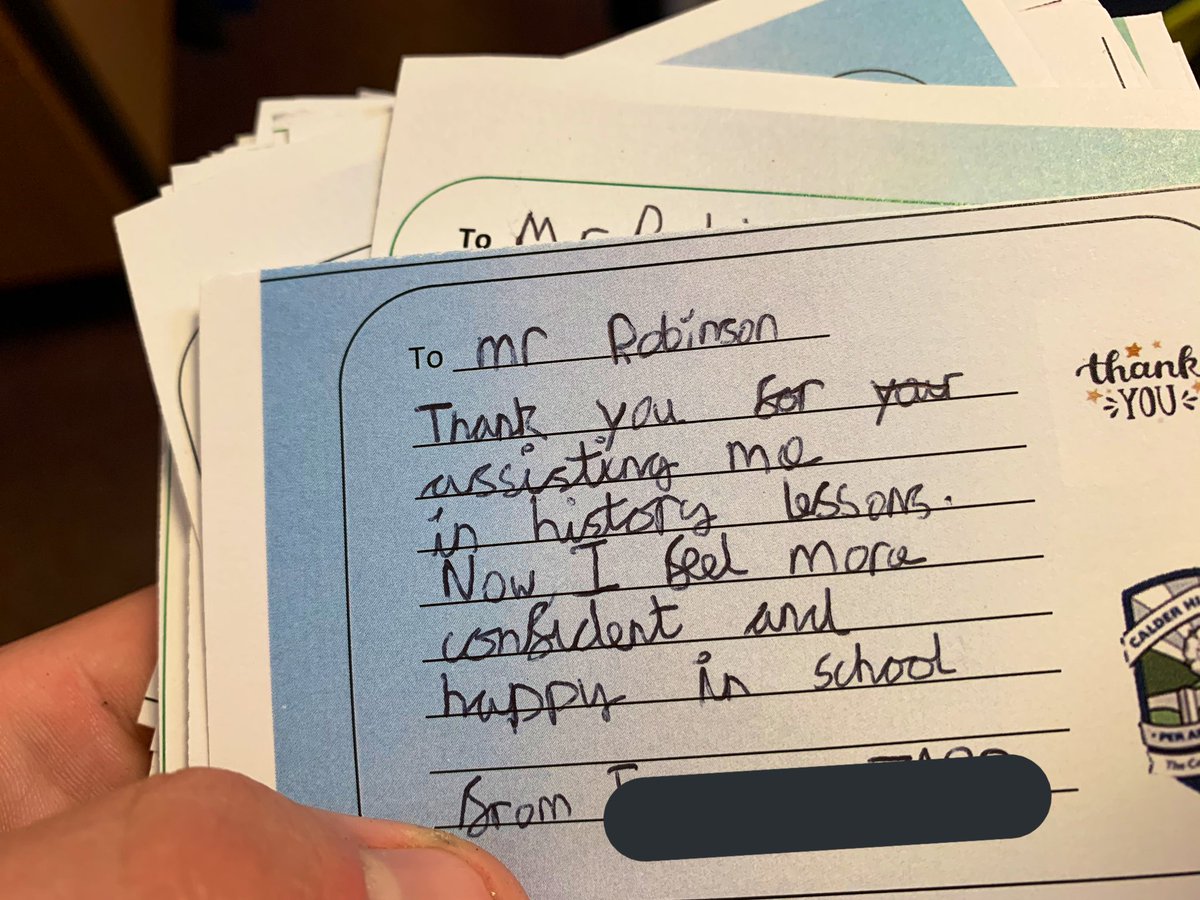 To Mr
To mr Robinson
Thank you for your
assisting me
in history lessons.
Now, I feel more
confident and
happy in school
from
thank
YOU
CALDER
PER
The